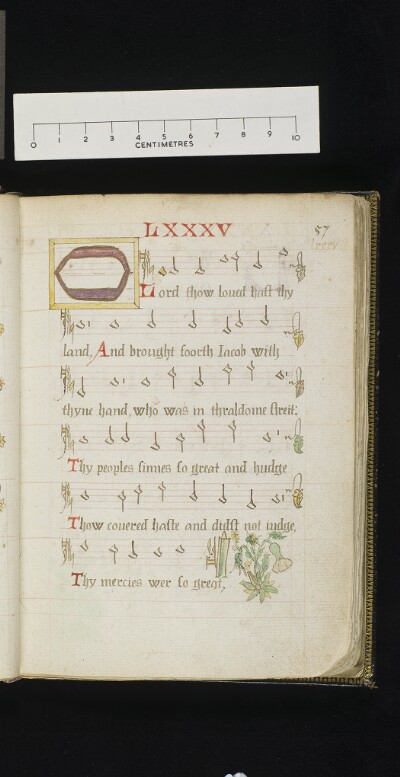 0 1 2 3 4 5 6 7 8 9 10
CENTIMETRES
LXXXV
57
lxxxv
O Lord thow loued hast thy
land, And brought foorth Iacob with
thyne hand, who was in thraldome streit:
Thy peoples sinnes so great and hudge
Thow couered haste and didst not iudge,
Thy mercies wer so great,